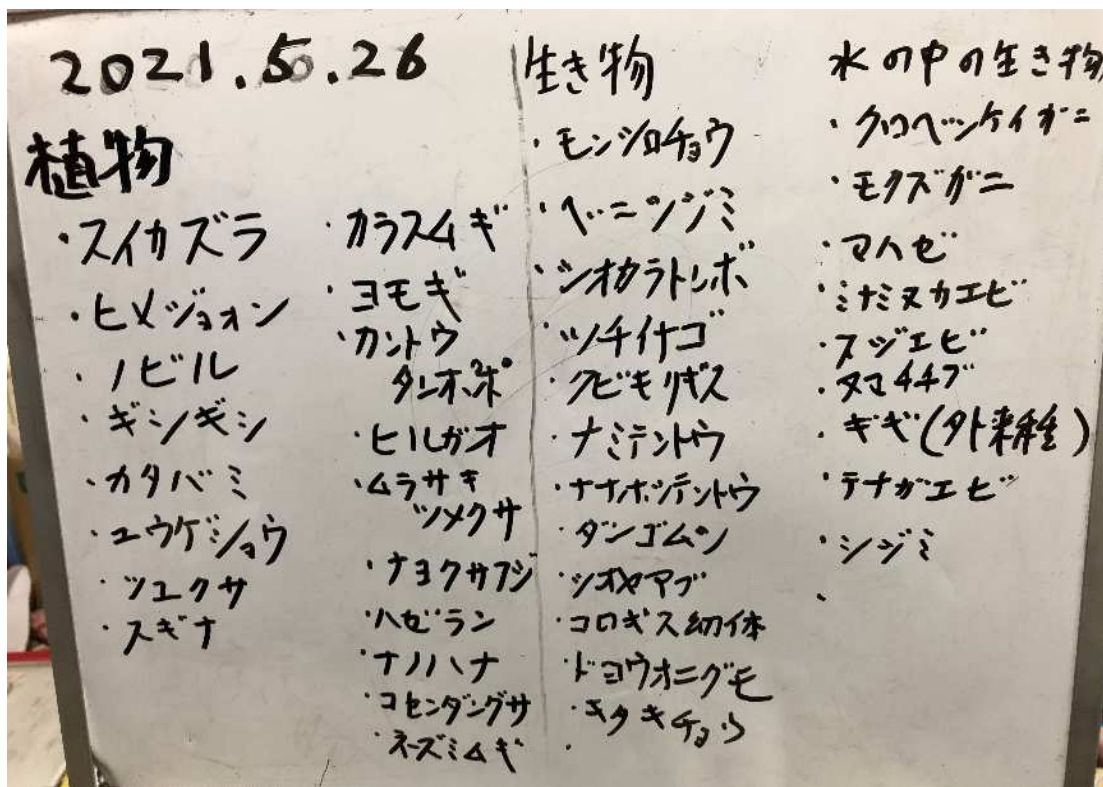 2021.5.26
植物
・スイカズラ
・ヒメジョオン
・ノビル
・ギシギシ
・カタバミ
・ユウゲショウ
・ツユクサ
・スギナ
・カラスムギ
・ヨモギ
・カントウ
タンポポ
・ヒルガオ
・ムラサキ
ツメクサ
・ナヨクサフジ
・ハゼラン
・ナノハナ
・コセンダングサ
・ネズミムギ
生き物
・モンシロチョウ
・ベニシジミ
・シオカラトンボ
・ツチイナゴ
・クビキリギス
・ナミテントウ
・ナナホシテントウ
・ダンゴムシ
・シオヤアブ
・コロギス幼体
・ドヨウオニグモ
・キタキチョウ
水の中の生き物
・クロベンケイガニ
・モクズガニ
・マハゼ
・ミナミヌカエビ
・スジエビ
・ヌマチチブ
・ギギ(外来種)
・テナガエビ
・シジミ